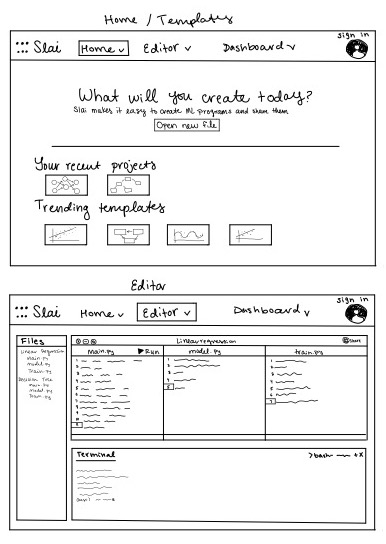 Home / Templates
sign in
Slai Home Editor Dashboard
What will you create today?
Slai makes it easy to create ML programs and share them
Open new file
Your recent projects
Trending templates
Editor
sign in
Slai Home Editor Dashboard
Files
Linear Regression
main.py
model.py
Train.py
Decision Tree
main.py
model.py
Train.py
Linear regression
Share
main.py Run
model.py
train.py
Terminal
>bash
+ x